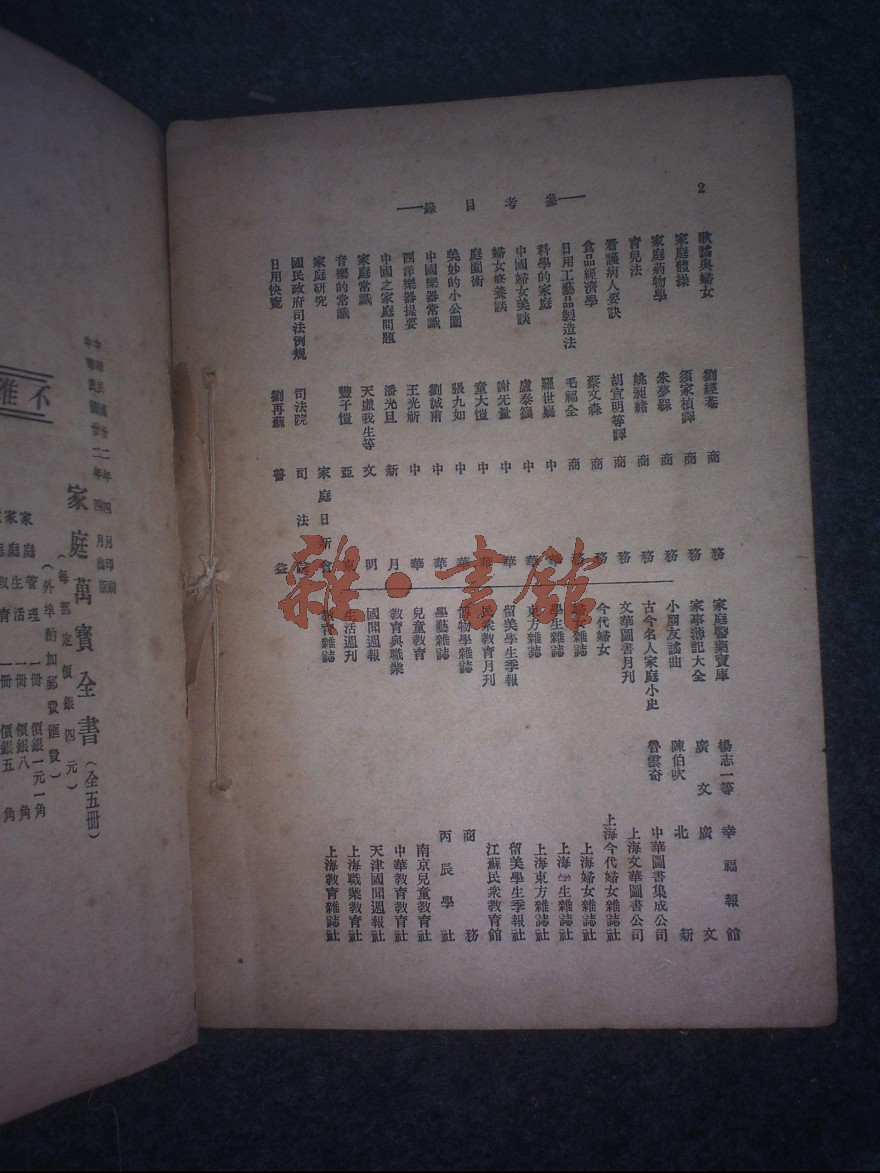 2
參考目錄
歌謠與婦女 劉經菴 商務
家庭體操 須家楨譯 商務
家庭藥物學 朱夢縣 商務
育兒法 姚昶緒 商務
看護病人要訣 胡宣明等譯 商務
食品經濟學 蔡文森 商務
日用工藝品製造法 毛福全 商務
科學的家庭 羅世嶷 中華
中國婦女美談 盧壽籛 中華
婦女修養談 謝无量 中華
庭園術 童大愷 中華
美妙的小公園 張九如 中華
中國樂器常識 劉誠甫 中華
西洋樂器提要 王光祈 中華
中國之家庭問題 潘光旦 新月
家庭常識 天虛我生等 文明
音樂的常識 豐子愷 亞東
家庭研究 家庭日新會
國民政府司法例規 司法院 司法院
日用快覽 劉再蘇 普益
家庭醫藥寶庫 楊志一等 幸福報館
家事簿記大全 廣文 廣文
小朋友謠曲 陳伯吹 北新
古今名人家庭小史 魯雲奇 中華圖書集成公司
文華圖書月刊 上海文華圖書公司
今代婦女 上海今代婦女雜誌社
婦女雜誌 上海婦女雜誌社
學生雜誌 上海學生雜誌社
東方雜誌 上海東方雜誌社
留美學生季報 留美學生季報社
民衆教育月刊 江蘇民衆教育館
博物學雜誌 商務
學藝雜誌 丙辰學社
兒童教育 南京兒童教育社
教育與職業 中華教育社
國聞週報 天津國聞週報社
生活週刊 上海職業教育社
教育雜誌 上海教育雜誌社
中華民國廿二年四月印刷
中華民國廿二年四月出版
家庭萬寶全書(全五冊)
(每部定價銀四元)
(外埠酌加郵費匯費)
家庭管理 一冊 價銀一元一角
家庭生活 一冊 價銀八角
不准
雜·書館